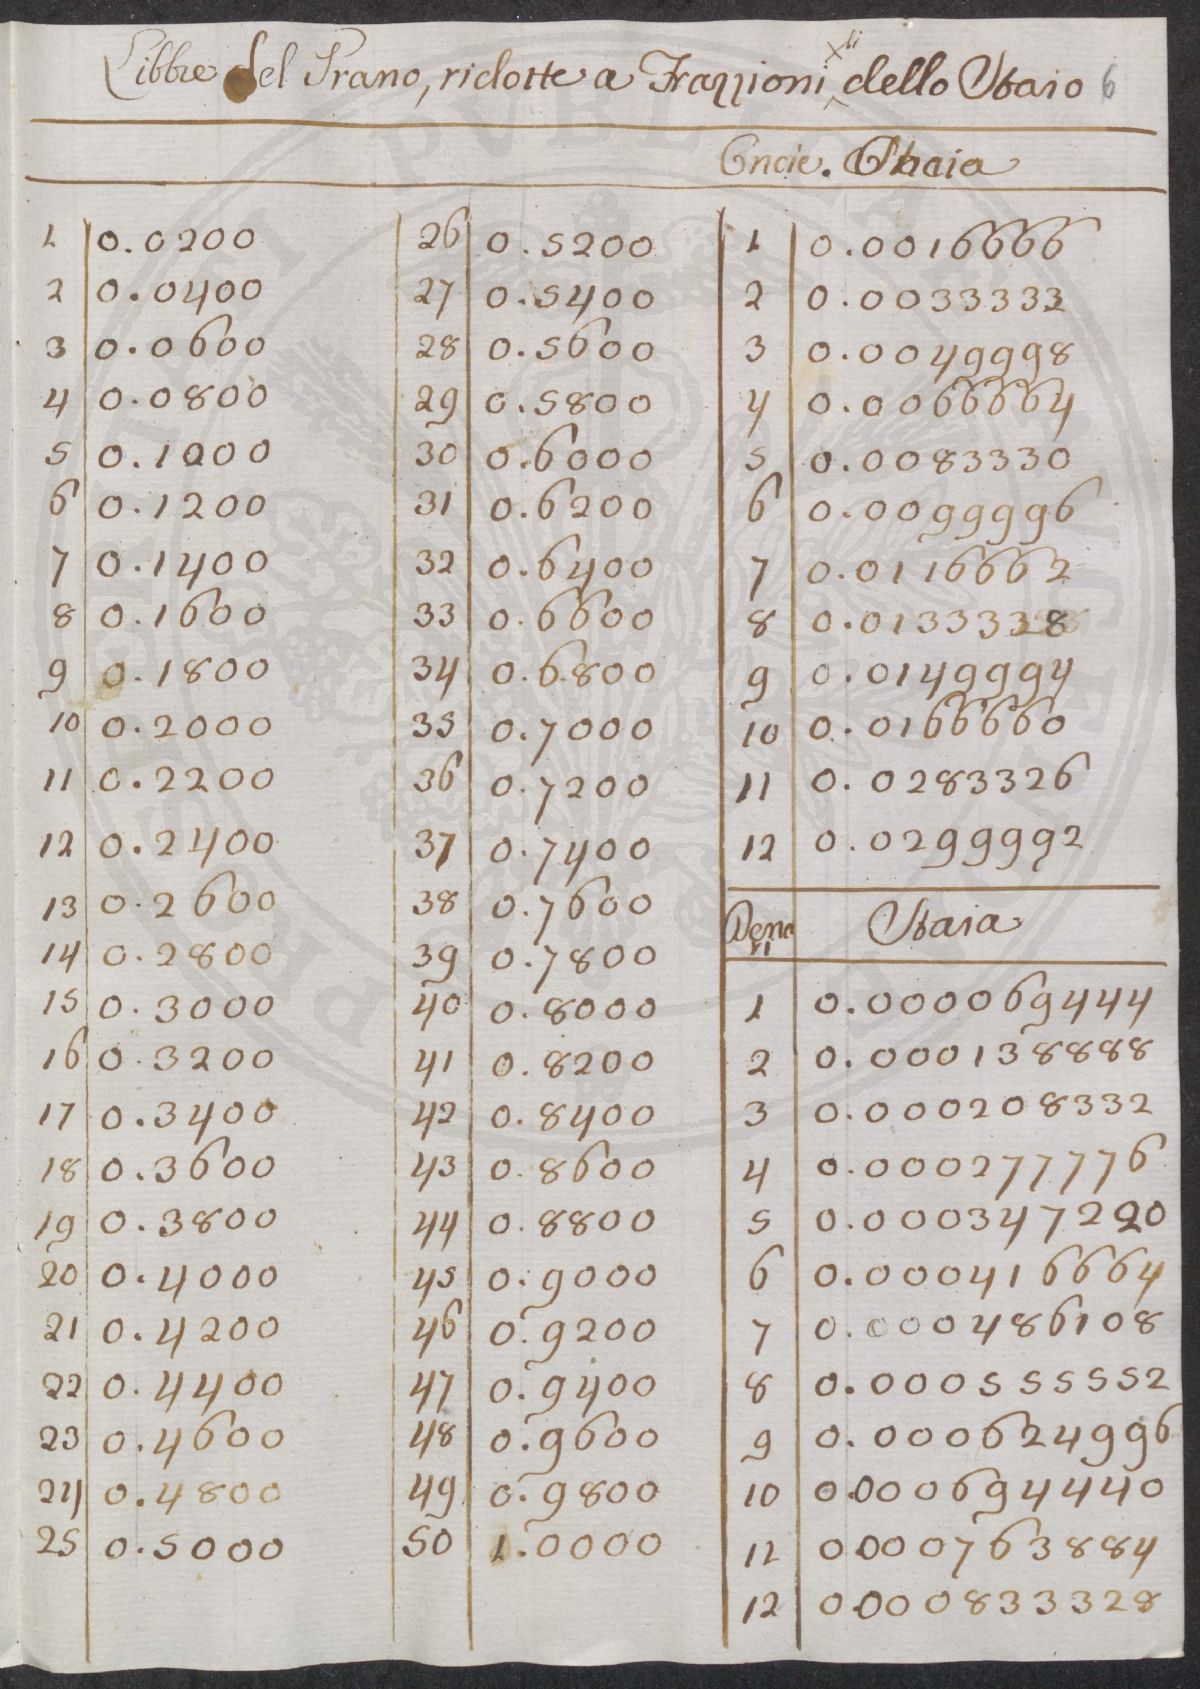 Libbre del Grano, ridotte a Frazzioni xli dello Staio 6
Oncie. Staia
1 0.0200 26 0.5200 1 0.0016666
2 0.0400 27 0.5400 2 0.0033332
3 0.0600 28 0.5600 3 0.0049998
4 0.0800 29 0.5800 4 0.0066664
5 0.1000 30 0.6000 5 0.0083330
6 0.1200 31 0.6200 6 0.0099996
7 0.1400 32 0.6400 7 0.0116662
8 0.1600 33 0.6600 8 0.0133328
9 0.1800 34 0.6800 9 0.0149994
10 0.2000 35 0.7000 10 0.0166660
11 0.2200 36 0.7200 11 0.0283326
12 0.2400 37 0.7400 12 0.0299992
13 0.2600 38 0.7600 Denari Staia
14 0.2800 39 0.7800
15 0.3000 40 0.8000 1 0.000069444
16 0.3200 41 0.8200 2 0.000138888
17 0.3400 42 0.8400 3 0.000208332
18 0.3600 43 0.8600 4 0.000277776
19 0.3800 44 0.8800 5 0.000347220
20 0.4000 45 0.9000 6 0.000416664
21 0.4200 46 0.9200 7 0.000486108
22 0.4400 47 0.9400 8 0.000555552
23 0.4600 48 0.9600 9 0.000624996
24 0.4800 49 0.9800 10 0.000694440
25 0.5000 50 1.0000 11 0.000763884
12 0.000833328